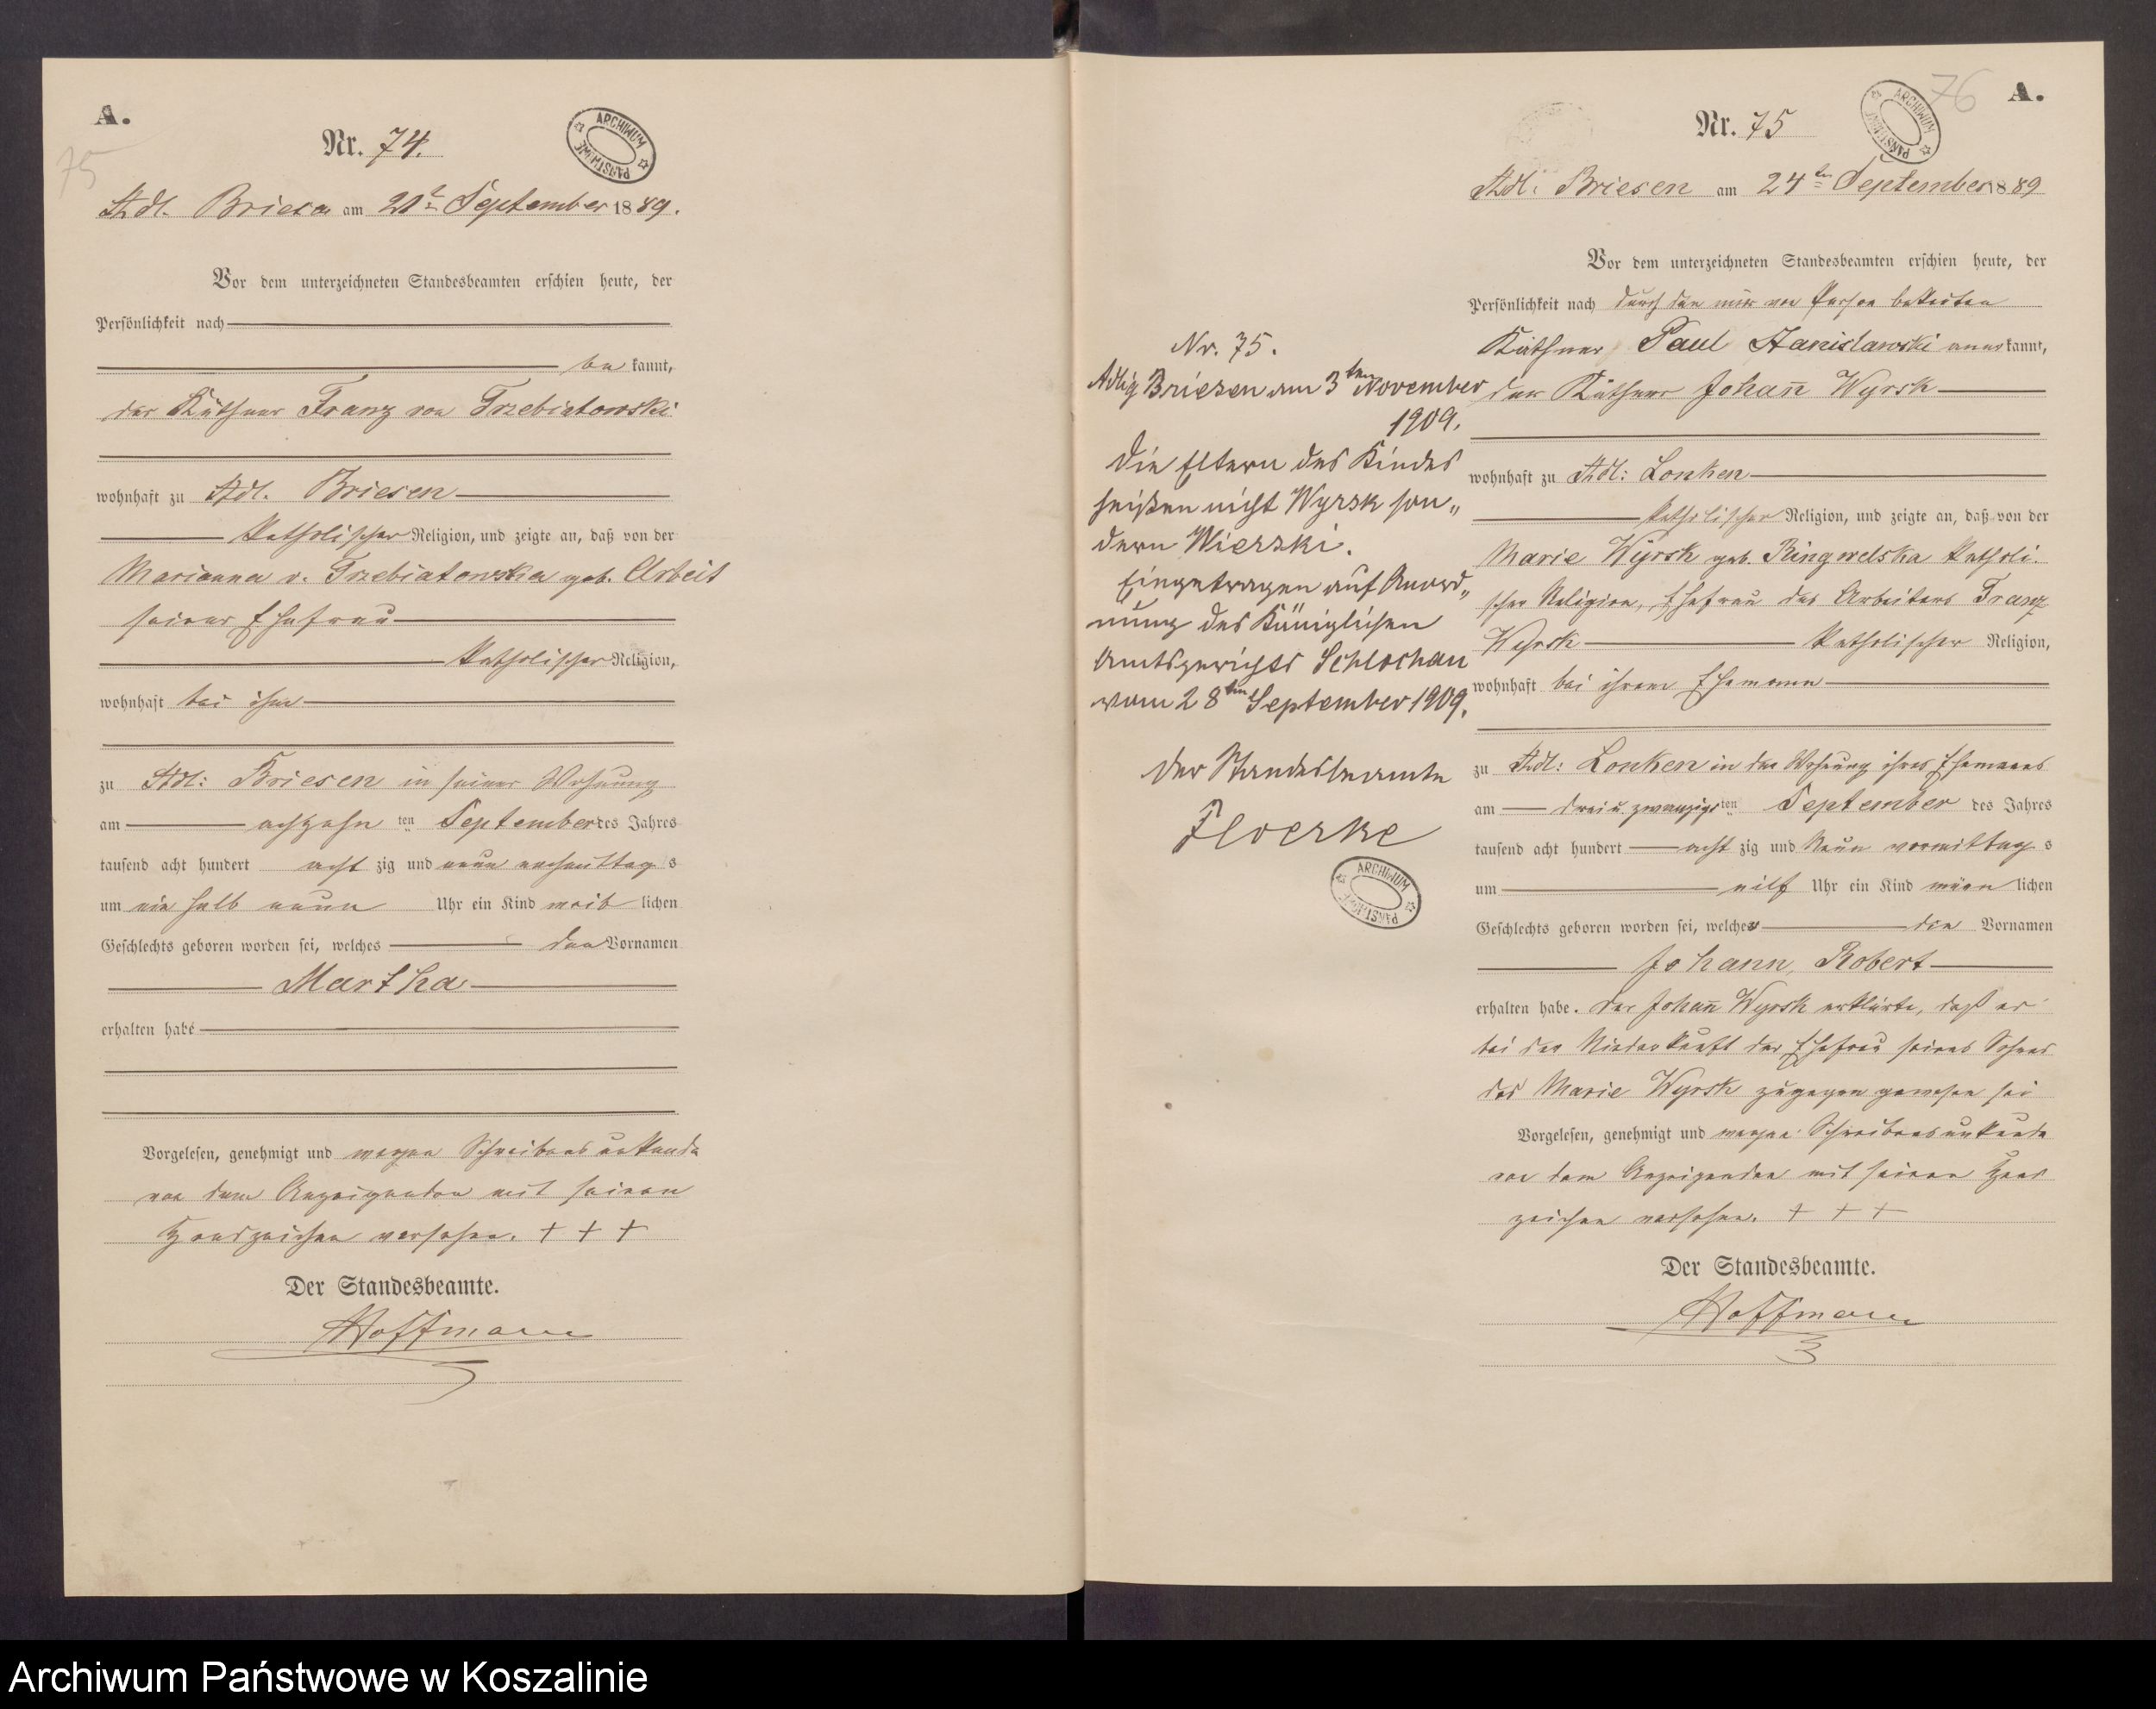 A.
75
Nr. 74.
ARCHIWUM PAŃSTWOWE
Adl. Briesen am 21t September 1889.
Vor dem unterzeichneten Standesbeamten erschien heute, der
Persönlichkeit nach
be kannt,
der Käthner Franz von Trzebiatowski
wohnhaft zu Adl. Briesen
katholischer Religion, und zeigte an, daß von der
Marianna v. Trzebiatowska geb. Arbeit
seiner Ehefrau
katholischer Religion,
wohnhaft bei ihm
zu Adl: Briesen in seiner Wohnung
am achtzehn ten September des Jahres
tausend acht hundert acht zig und neun nachmittag s
um ein halb neun Uhr ein Kind weib lichen
Geschlechts geboren worden sei, welches den Vornamen
Martha
erhalten habe
Vorgelesen, genehmigt und wegen Schreibensunkunde
von dem Anzeigenden mit seinen
Handzeichen versehen. + + +
Der Standesbeamte.
Hoffmann
76
A.
Nr. 75
ARCHIWUM PAŃSTWOWE
Adl: Briesen am 24ten September 1889
Vor dem unterzeichneten Standesbeamten erschien heute, der
Persönlichkeit nach durch den mir von Person bekannten
Käthner Paul Stanislawski aner kannt,
der Käthner Johan̄ Wyrsk
wohnhaft zu Adl: Lonken
katholischer Religion, und zeigte an, daß von der
Marie Wyrsk geb. Ringwelska katholi-
scher Religion, Ehefrau des Arbeiters Franz
Wyrsk katholischer Religion,
wohnhaft bei ihrem Ehemann
zu Adl: Lonken in der Wohnung ihres Ehemannes
am drei u. zwanzigs ten September des Jahres
tausend acht hundert acht zig und Neun vormittag s
um eilf Uhr ein Kind männ lichen
Geschlechts geboren worden sei, welches die Vornamen
Johann, Robert
erhalten habe. Der Johan̄ Wyrsk erklärte, daß er
bei der Niederkunft der Ehefrau seines Sohnes
der Marie Wyrsk zugegen gewesen sei
Vorgelesen, genehmigt und wegen Schreibensunkunde
von dem Anzeigenden mit seinen Hand
zeichen versehen. + + +
Der Standesbeamte.
Hoffmann
Nr. 75.
Adlig Briesen am 3ten November
1909.
Die Eltern des Kindes
heißen nicht Wyrsk son„
dern Wierski.
Eingetragen auf Anord„
nung des Königlichen
Amtsgerichts Schlochau
vom 28ten September 1909.
Der Standesbeamte
Floerke
ARCHIWUM PAŃSTWOWE
Archiwum Państwowe w Koszalinie